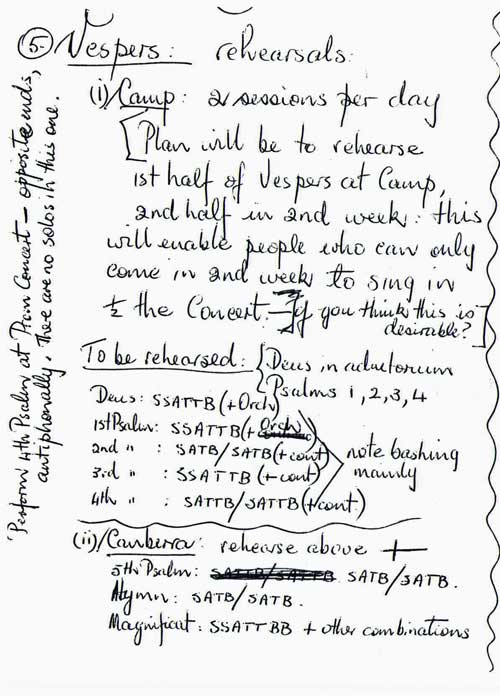 5. Vespers: rehearsals:
(i) Camp: 2 sessions per day
[Plan will be to rehearse
1st half of Vespers at Camp,
2nd half in 2nd week: this
will enable people who can only
come in 2nd week to sing in
½ the Concert. — If you think this is
desirable?]
To be rehearsed: { Deus in adiutorium
Psalms 1, 2, 3, 4
Deus: SSATTB (+ Orch)
1st Psalm: SSATTB (+ Orch)
2nd " : SATB/SATB (+ cont)
3rd " : SSATTB (+ cont)
4th " : SATTB/SATTB (+ cont)
note bashing
mainly
(ii) Canberra: rehearse above +
5th Psalm: SATB/SATB.
Hymn: SATB/SATB.
Magnificat: SSATTBB + other combinations
Perform 4th Psalm at Prom Concert – opposite ends,
antiphonally, there are no solos in this one.